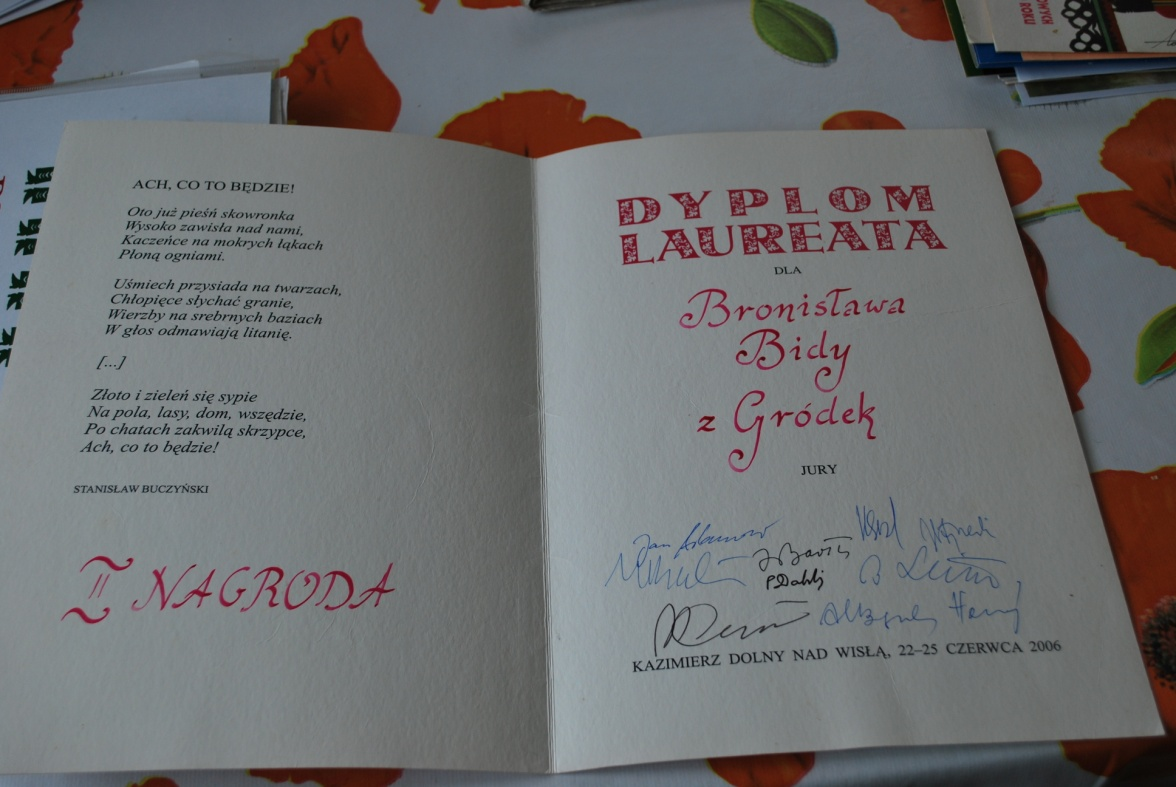 ACH, CO TO BĘDZIE!
Oto już pieśń skowronka
Wysoko zawisła nad nami,
Kaczeńce na mokrych łąkach
Płoną ogniami.
Uśmiech przysiada na twarzach,
Chłopięce słychać granie,
Wierzby na srebrnych baziach
W głos odmawiają litanię.
[...]
Złoto i zieleń się sypie
Na pola, lasy, dom, wszędzie,
Po chatach zakwilą skrzypce,
Ach, co to będzie!
STANISŁAW BUCZYŃSKI
II NAGRODA
DYPLOM
LAUREATA
DLA
Bronisława
Bidy
z Gródek
JURY
KAZIMIERZ DOLNY NAD WISŁĄ, 22–25 CZERWCA 2006
ROKU